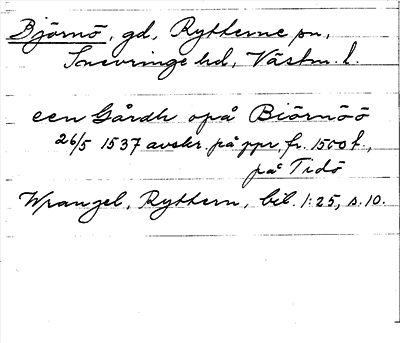 Björnö, gd, Rytterne sn,
Snevringe hd, Västm. l.
een Gårdh opå Biörnöö
26/5 1537 avskr. på ppr, fr. 1500 t.,
på Tidö
Wrangel, Ryttern, bil. 1:25, s. 10.